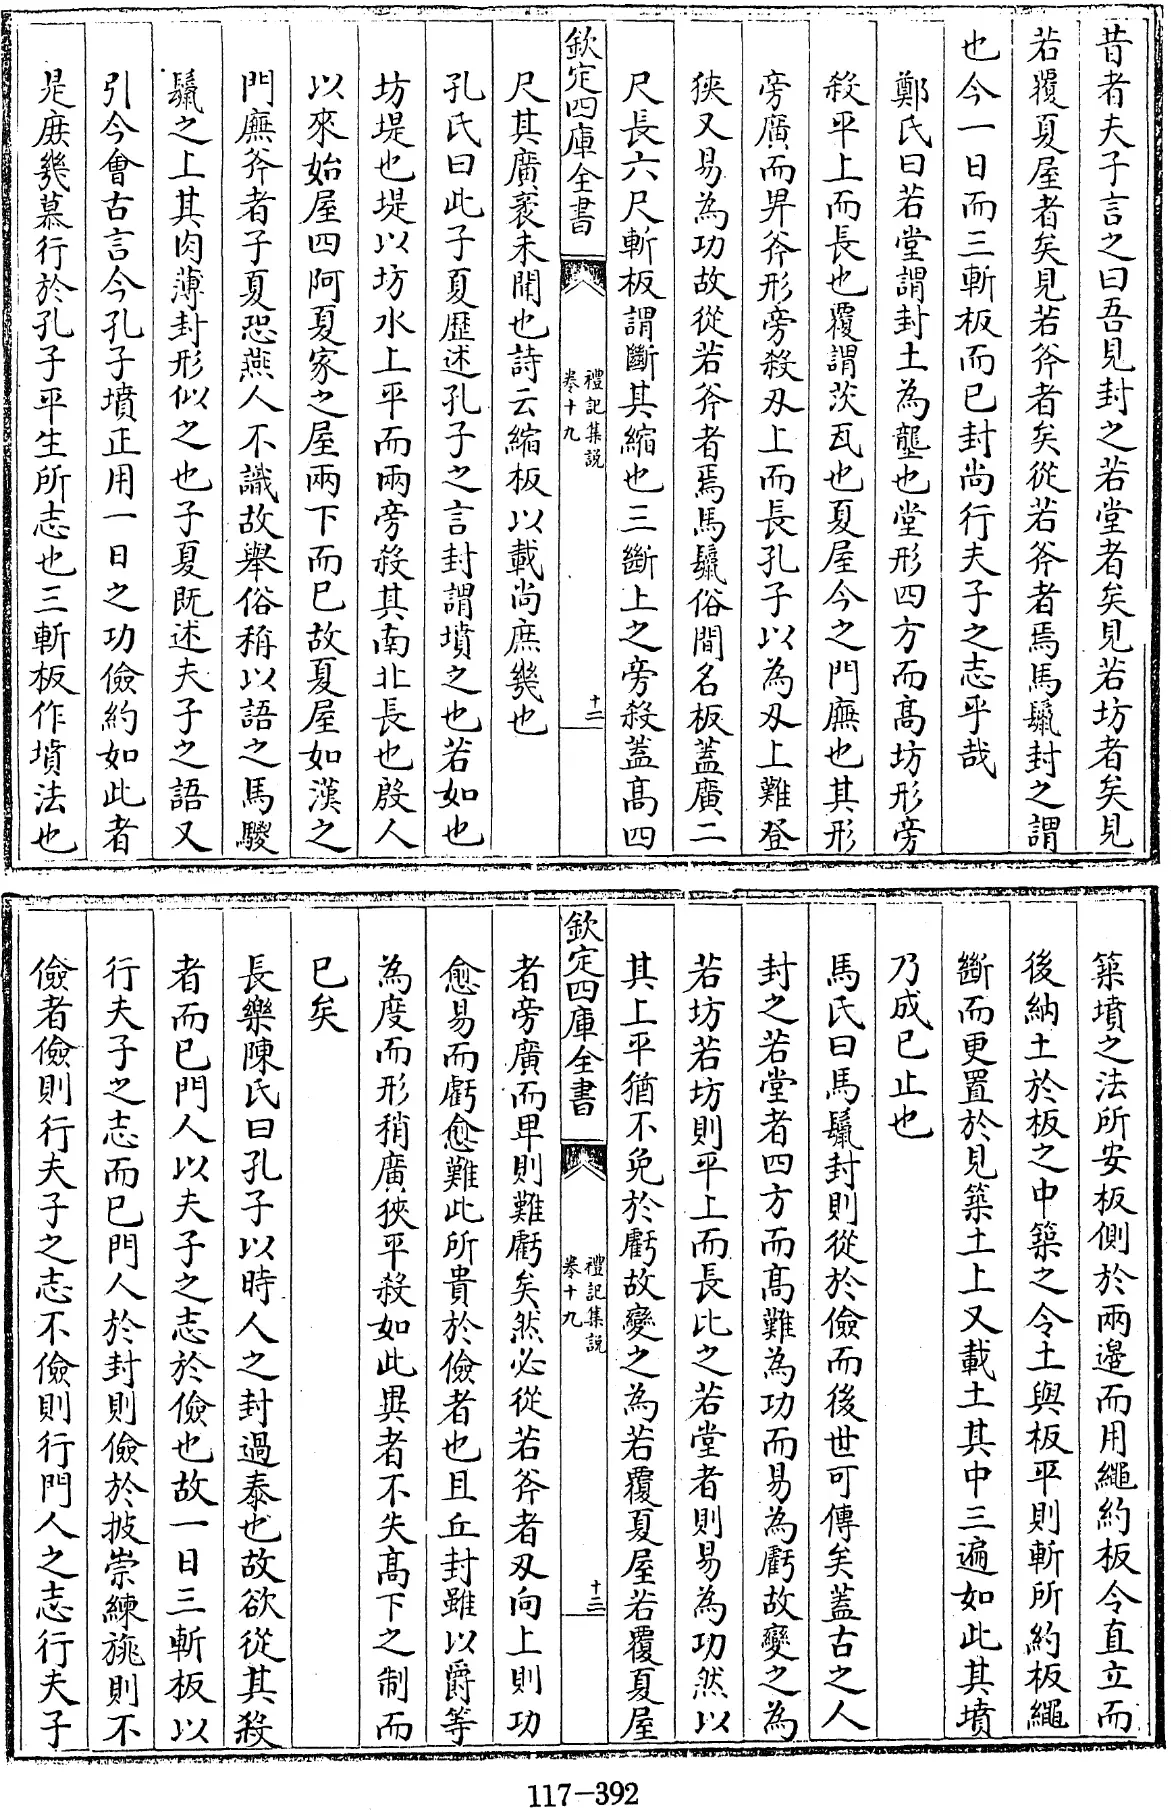 昔者夫子言之曰吾見封之若堂者矣見若坊者矣見
若覆夏屋者矣見若斧者矣從若斧者焉馬鬛封之謂
也今一日而三斬板而已封尚行夫子之志乎哉
鄭氏曰若堂謂封土為壟也堂形四方而髙坊形旁
殺平上而長也覆謂茨瓦也夏屋今之門廡也其形
旁廣而卑斧形旁殺刄上而長孔子以為刄上難登
狹又易為功故從若斧者焉馬鬛俗間名板蓋廣二
尺長六尺斬板謂斷其縮也三斷上之旁殺蓋髙四
欽定四庫全書
禮記集説
卷十九
十二
尺其廣袤未聞也詩云縮板以載尚庶幾也
孔氏曰此子夏歴述孔子之言封謂墳之也若如也
坊堤也堤以坊水上平而兩旁殺其南北長也殷人
以來始屋四阿夏家之屋兩下而已故夏屋如漢之
門廡斧者子夏恐燕人不識故舉俗稱以語之馬騣
鬛之上其肉薄封形似之也子夏既述夫子之語又
引今會古言今孔子墳正用一日之功儉約如此者
是庶幾慕行於孔子平生所志也三斬板作墳法也
築墳之法所安板側於兩邉而用繩約板令直立而
後納土於板之中築之令土與板平則斬所約板繩
斷而更置於見築土上又載土其中三遍如此其墳
乃成已止也
馬氏曰馬鬛封則從於儉而後世可傳矣蓋古之人
封之若堂者四方而髙難為功而易為虧故變之為
若坊若坊則平上而長比之若堂者則易為功然以
其上平猶不免於虧故變之為若覆夏屋若覆夏屋
欽定四庫全書
禮記集説
卷十九
十三
者旁廣而卑則難虧矣然必從若斧者刄向上則功
愈易而虧愈難此所貴於儉者也且丘封雖以爵等
為度而形稍廣狹平殺如此異者不失髙下之制而
已矣
長樂陳氏曰孔子以時人之封過泰也故欲從其殺
者而已門人以夫子之志於儉也故一日三斬板以
行夫子之志而已門人於封則儉於披崇練旐則不
儉者儉則行夫子之志不儉則行門人之志行夫子
117-392